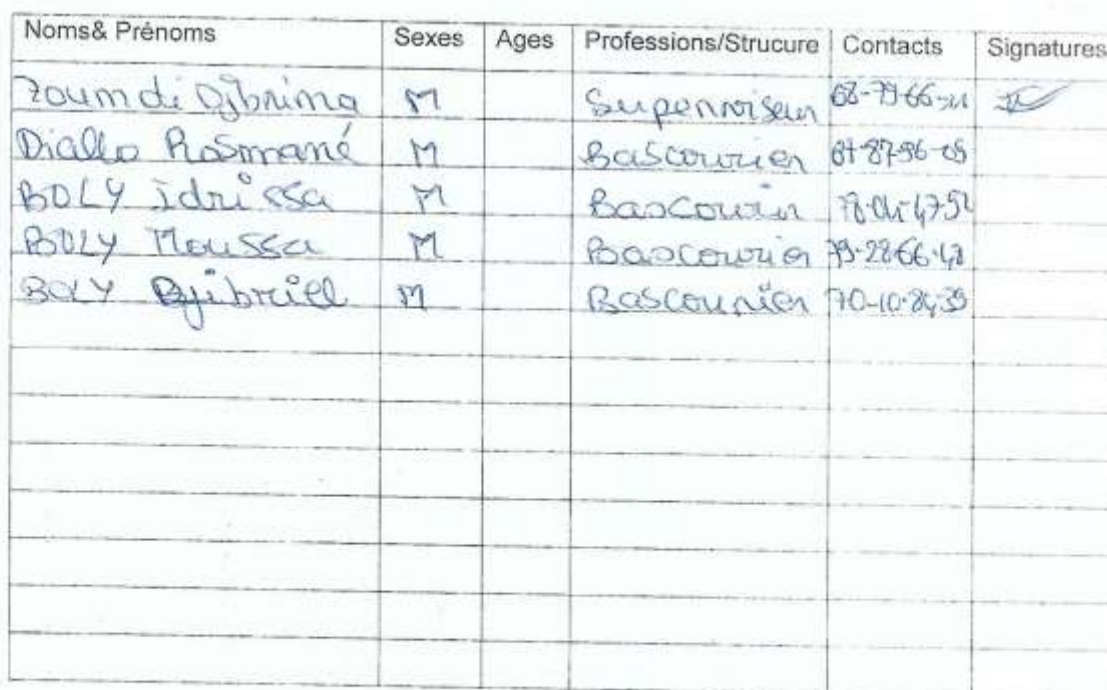 Noms& Prénoms Sexes Ages Professions/Strucure Contacts Signatures
Zoumdi Djibrima M Superviseur 68-79-66-21
Diallo Rosmané M Bascourier 67-87-96-05
BOLY idrissa M Bascourier 78-04-47-52
BOLY Moussa M Bascourier 79-28-66-48
BOLY Djibriell M Bascourier 70-10-84-39